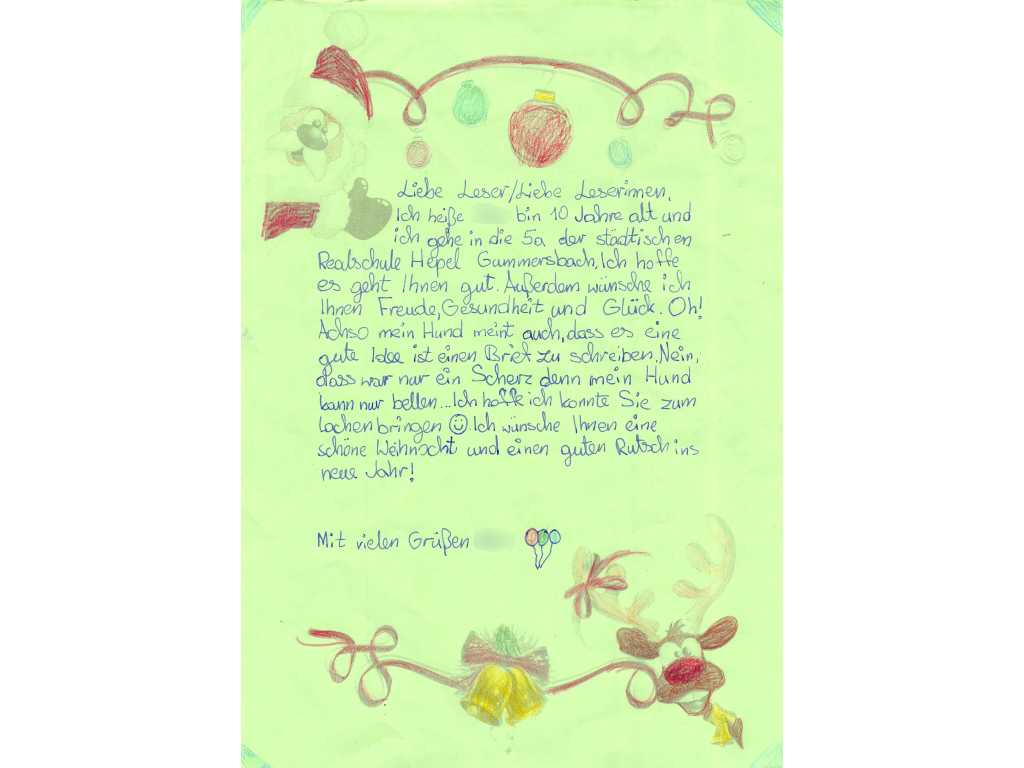 Liebe Leser/Liebe Leserinnen,
Ich heiße bin 10 Jahre alt und
ich gehe in die 5a der städtischen
Realschule Hepel Gummersbach, Ich hoffe
es geht Ihnen gut. Außerdem wünsche ich
Ihnen Freude, Gesundheit und Glück. Oh!
Achso mein Hund meint auch, dass es eine
gute Idee ist einen Brief zu schreiben. Nein,
dass war nur ein Scherz denn mein Hund
kann nur bellen... Ich hoffe ich konnte Sie zum
lachen bringen ☺. Ich wünsche Ihnen eine
schöne Weihnacht und einen guten Rutsch ins
neue Jahr!
Mit vielen Grüßen